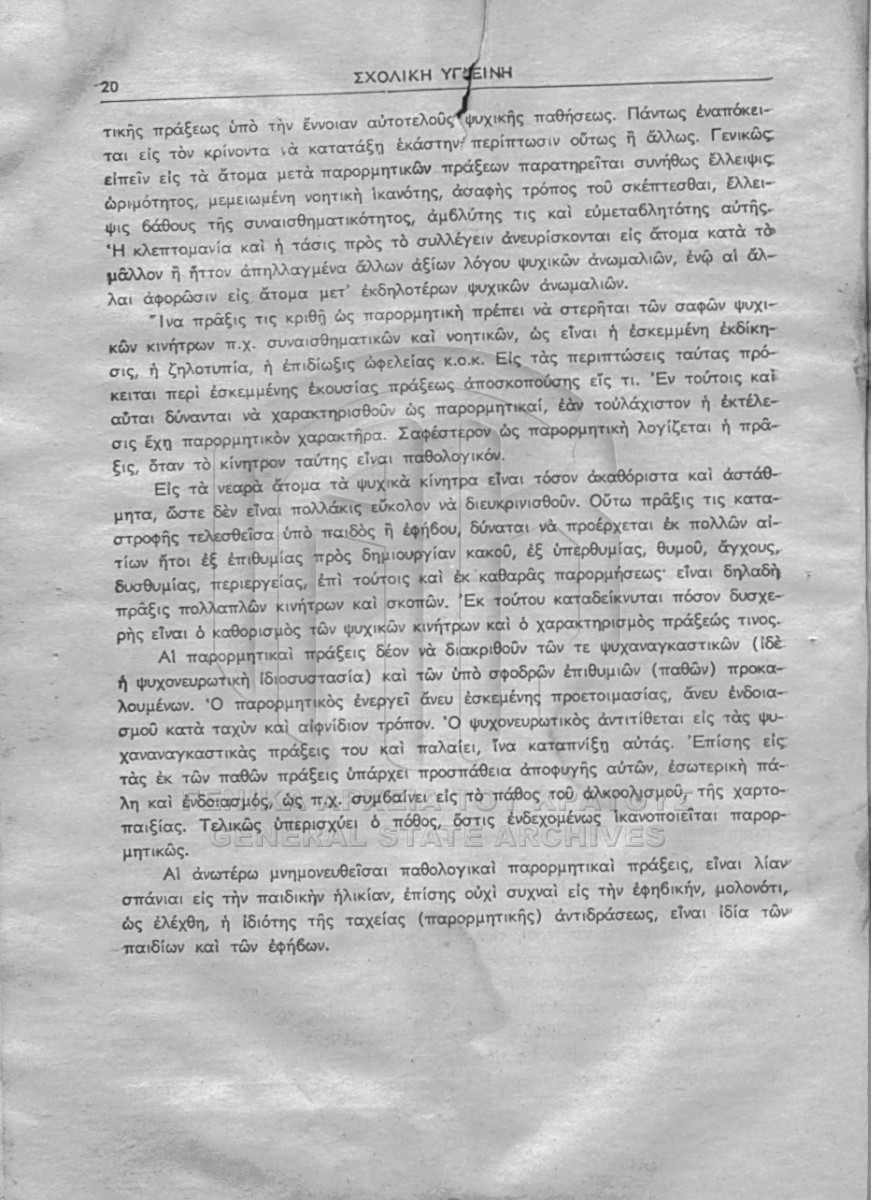 20
ΣΧΟΛΙΚΗ ΥΓΙΕΙΝΗ
τικῆς πράξεως ὑπὸ τὴν ἔννοιαν αὐτοτελοῦς ψυχικῆς παθήσεως. Πάντως ἐναπόκει-
ται εἰς τὸν κρίνοντα νὰ κατατάξῃ ἑκάστην περίπτωσιν οὕτως ἢ ἄλλως. Γενικῶς
εἰπεῖν εἰς τὰ ἄτομα μετὰ παρορμητικῶν πράξεων παρατηρεῖται συνήθως ἔλλειψις
ὡριμότητος, μεμειωμένη νοητικὴ ἱκανότης, ἀσαφὴς τρόπος τοῦ σκέπτεσθαι, ἔλλει-
ψις βάθους τῆς συναισθηματικότητος, ἀμβλύτης τις καὶ εὐμεταβλητότης αὐτῆς.
Ἡ κλεπτομανία καὶ ἡ τάσις πρὸς τὸ συλλέγειν ἀνευρίσκονται εἰς ἄτομα κατὰ τὸ
μᾶλλον ἢ ἧττον ἀπηλλαγμένα ἄλλων ἀξίων λόγου ψυχικῶν ἀνωμαλιῶν, ἐνῷ αἱ ἄλ-
λαι ἀφορῶσιν εἰς ἄτομα μετ᾿ ἐκδηλοτέρων ψυχικῶν ἀνωμαλιῶν.
Ἵνα πρᾶξις τις κριθῇ ὡς παρορμητικὴ πρέπει νὰ στερῆται τῶν σαφῶν ψυχι-
κῶν κινήτρων π.χ. συναισθηματικῶν καὶ νοητικῶν, ὡς εἶναι ἡ ἐσκεμμένη ἐκδίκη-
σις, ἡ ζηλοτυπία, ἡ ἐπιδίωξις ὠφελείας κ.ο.κ. Εἰς τὰς περιπτώσεις ταύτας πρό-
κειται περὶ ἐσκεμμένης ἑκουσίας πράξεως ἀποσκοπούσης εἴς τι. Ἐν τούτοις καὶ
αὗται δύνανται νὰ χαρακτηρισθοῦν ὡς παρορμητικαί, ἐὰν τοὐλάχιστον ἡ ἐκτέλε-
σις ἔχῃ παρορμητικὸν χαρακτῆρα. Σαφέστερον ὡς παρορμητικὴ λογίζεται ἡ πρᾶ-
ξις, ὅταν τὸ κίνητρον ταύτης εἶναι παθολογικόν.
Εἰς τὰ νεαρὰ ἄτομα τὰ ψυχικὰ κίνητρα εἶναι τόσον ἀκαθόριστα καὶ ἀστάθ-
μητα, ὥστε δὲν εἶναι πολλάκις εὔκολον νὰ διευκρινισθοῦν. Οὕτω πρᾶξις τις κατα-
στροφῆς τελεσθεῖσα ὑπὸ παιδὸς ἢ ἐφήβου, δύναται νὰ προέρχεται ἐκ πολλῶν αἰ-
τίων ἤτοι ἐξ ἐπιθυμίας πρὸς δημιουργίαν κακοῦ, ἐξ ὑπερθυμίας, θυμοῦ, ἄγχους,
δυσθυμίας, περιεργείας, ἐπὶ τούτοις καὶ ἐκ καθαρᾶς παρορμήσεως· εἶναι δηλαδὴ
πρᾶξις πολλαπλῶν κινήτρων καὶ σκοπῶν. Ἐκ τούτου καταδείκνυται πόσον δυσχε-
ρὴς εἶναι ὁ καθορισμὸς τῶν ψυχικῶν κινήτρων καὶ ὁ χαρακτηρισμὸς πράξεώς τινος.
Αἱ παρορμητικαὶ πράξεις δέον νὰ διακριθοῦν τῶν τε ψυχαναγκαστικῶν (ἰδὲ
ἡ ψυχονευρωτικὴ ἰδιοσυστασία) καὶ τῶν ὑπὸ σφοδρῶν ἐπιθυμιῶν (παθῶν) προκα-
λουμένων. Ὁ παρορμητικὸς ἐνεργεῖ ἄνευ ἐσκεμένης προετοιμασίας, ἄνευ ἐνδοια-
σμοῦ κατὰ ταχὺν καὶ αἰφνίδιον τρόπον. Ὁ ψυχονευρωτικὸς ἀντιτίθεται εἰς τὰς ψυ-
χαναναγκαστικὰς πράξεις του καὶ παλαίει, ἵνα καταπνίξῃ αὐτάς. Ἐπίσης εἰς
τὰς ἐκ τῶν παθῶν πράξεις ὑπάρχει προσπάθεια ἀποφυγῆς αὐτῶν, ἐσωτερικὴ πά-
λη καὶ ἐνδοιασμός, ὡς π.χ. συμβαίνει εἰς τὸ πάθος τοῦ ἀλκοολισμοῦ, τῆς χαρτο-
παιξίας. Τελικῶς ὑπερισχύει ὁ πόθος, ὅστις ἐνδεχομένως ἱκανοποιεῖται παρορ-
μητικῶς.
Αἱ ἀνωτέρω μνημονευθεῖσαι παθολογικαὶ παρορμητικαὶ πράξεις, εἶναι λίαν
σπάνιαι εἰς τὴν παιδικὴν ἡλικίαν, ἐπίσης οὐχὶ συχναὶ εἰς τὴν ἐφηβικήν, μολονότι,
ὡς ἐλέχθη, ἡ ἰδιότης τῆς ταχείας (παρορμητικῆς) ἀντιδράσεως, εἶναι ἰδία τῶν
παιδίων καὶ τῶν ἐφήβων.
ΓΕΝΙΚΑ ΑΡΧΕΙΑ ΤΟΥ ΚΡΑΤΟΥΣ
GENERAL STATE ARCHIVES